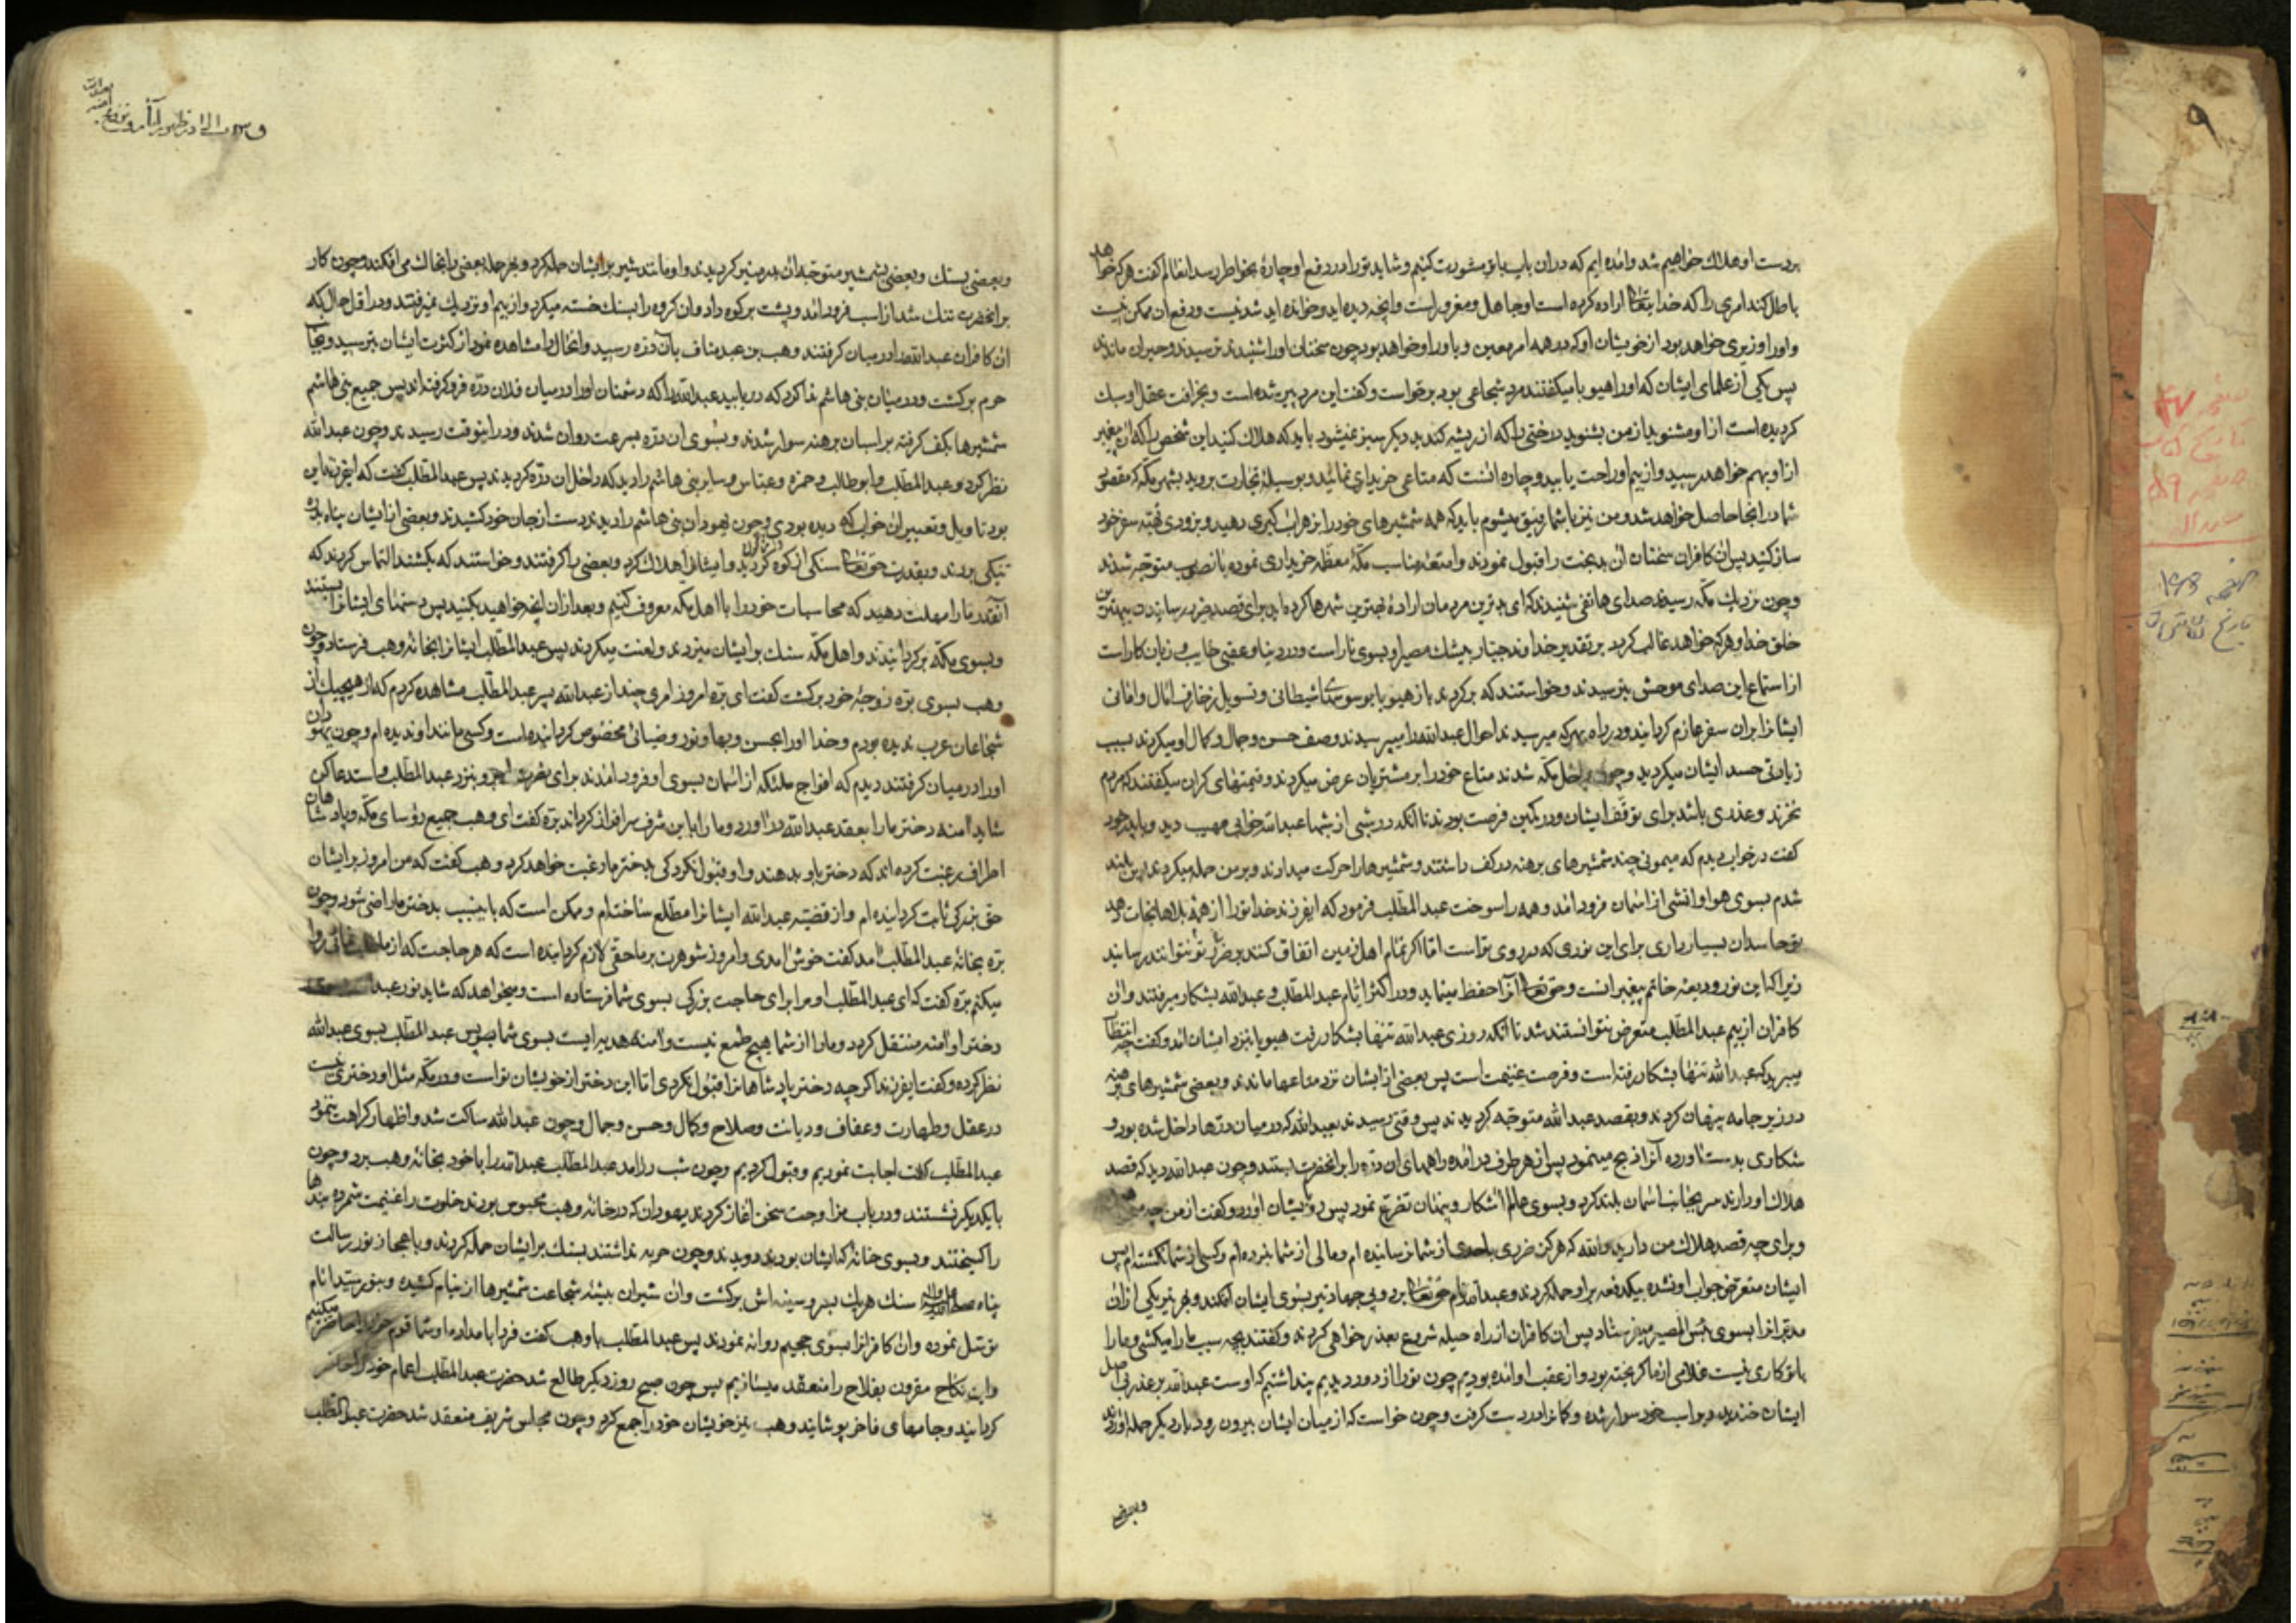 بر دست او هلاک خواهیم شد و آمده ایم که در این باب با تو مشورت کنیم و شاید تو را در دفع او چارهٔ بخاطر رسد انظالم گفت هر که خواهد
باطل کند امری را که خدا ایتعالی اراده کرده است او جاهل و مغرور است و آنچه دیده اید و خوانده اید شدنیست و دفع ان ممکن نیست
و او را وزیری خواهد بود از خویشان او که در همه امر معین و یاور او خواهد بود چون سخنان او را شنیدند ترسیدند و حیران ماندند
پس یکی از علمای ایشان که او را هیوبا میگفتند مرد شجاعی بود برخواست و گفت این مرد پیر شده است و بخرافت عقل او سبک
گردیده است از او مشنوید از من بشنوید درختی را که از ریشه کندید دیگر سبز نمیشود باید که هلاک کنید این شخص را که آن پیغمبر
از او بهم خواهد رسید و از بیم او راحت یابید و چاره آنست که متاعی خریداری نمائید و بوسیلهٔ تجارت بروید بشهر مکه که مقصود
شما در انجا حاصل خواهد شد و من نیز با شما رفیق میشوم باید که همه شمشیرهای خود را بزهر اب گیری دهید و بزودی تهیه سفر خود
ساز کنید پس آن کافران سخنان آن بدبخت را قبول نمودند و امتعه مناسب مکهٔ معظمه خریداری نموده بانصوب متوجه شدند
و چون نزدیک مکه رسیدند صدای هاتفی شنیدند که ای بدترین مردمان ارادهٔ بهترین شهرها کرده اید برای قصد ضرر رسانیدن بهترین
خلق خدا و هر که خواهد غالب گردد بر تقدیر خداوند جبار بیشک مصیر او بسوی نار است و در دنیا و عقبی خایب و زیان کار است
از استماع این صدای موحش بترسیدند و خواستند که برگردند باز هیوبا بوسوسهای شیطانی و تسویل زخارف آمال و امانی
ایشانرا بران سفر عازم گردانید و در راه بهر که میرسیدند احوال عبدالله را میپرسیدند و وصف حسن و جمال و کمال او میکردند سبب
زیادتی حسد ایشان میگردید و چون داخل مکه شدند متاع خود را بر مشتریان عرض میکردند و قیمتهای گران میگفتند که مردم
نخرند و عذری باشد برای توقف ایشان و در کمین فرصت بودند تا آنکه در شبی از شبها عبدالله خوابی مهیب دید و با پدر خود
گفت در خواب دیدم که میمونی چند شمشیرهای برهنه در کف داشتند و شمشیرها را حرکت میدادند و بر من حمله میکردند و من بلند
شدم بسوی هوا و اتشی از آسمان فرود امد و همه را سوخت عبدالمطلب فرمود که ایفرزند خدا تو را از همهٔ بلاها نجات دهد
تو حاسدان بسیار داری برای این نوری که در روی تو است اما اگر تمام اهل زمین اتفاق کنند بر ضرر تو نتوانند رسانید
زیرا که این نور ودیعهٔ خاتم پیغمبرانست و حقتعالی آنرا حفظ مینماید و در اکثر ایام عبدالمطلب و عبدالله بشکار میرفتند و ان
کافران از بیم عبدالمطلب متعرض نتوانستند شد تا آنکه روزی عبدالله تنها بشکار رفت هیوبا بنزد ایشان آمد و گفت چه انتظار
میبرید که عبدالله تنها بشکار رفته است و فرصت غنیمت است پس بعضی از ایشان نزد متاعها ماندند و بعضی شمشیرهای برهنه
در زیر جامه پنهان کردند و بقصد عبدالله متوجه گردیدند پس وقتی رسیدند بعبدالله که در میان درها داخل شده بود و
شکاری بدست اورده آنرا ذبح مینمود پس از هر طرف در آمده راههای ان دره را بر انحضرت بستند و چون عبدالله دید که قصد
هلاک او دارند سر بجانب آسمان بلند کرد و بسوی عالم آشکار و پنهان تضرع نمود پس رو بایشان آورد و گفت از من چه
و برای چه قصد هلاک من دارید والله که هرگز ضرری باحدی از شما نرسانیده ام و مالی از شما نبرده ام و کسی از شما نکشته ام پس
ایشان متعرض جواب او نشده بیکدفعه بر او حمله کردند و عبدالله نام حقتعالی برد و پی چهار تیر بسوی ایشان افکند و بهر تیر یکی از ان
مدبرانرا بسوی بئس المصیر میفرستاد پس ان کافران از راه حیله شروع بعذرخواهی کردند و گفتند بچه سبب ما را میکشی و ما را
با تو کاری نیست غلامی از ما گریخته بود و از عقب او امده بودیم چون تو را از دور دیدیم پنداشتیم که اوست عبدالله بر عذر بی اصل
ایشان خندید و بر اسب خود سوار شده و کمانرا در دست گرفت و چون خواست که از میان ایشان بیرون رود بار دیگر حمله اوردند
وبعضی
بعضی بسنگ و بعضی بشمشیر متوجه ان بدر منیر گردیدند و او مانند شیر بر ایشان حمله کرد و بهر حمله بعضی را بخاک می افکند و چون کار
بر انحضرت تنک شد از اسب فرود امد و پشت بر کوه داد و ان کروه را بسنک خسته میکرد و از بیم او نزدیک نمیرفتند و در اقل حال که
ان کافران عبدالله را در میان گرفتند وهب بن عبد مناف بآن دره رسید و انحال را مشاهده نمود از کثرت ایشان بترسید و بجانب
حرم برگشت و در میان بنی هاشم ندا کرد که دریابید عبدالله را که دشمنان او را در میان فلان دره فرو گرفته اند پس جمیع بنی هاشم
شمشیرها بکف گرفته بر اسبان برهنه سوار شدند و بسوی ان دره بسرعت روان شدند و در اینوقت رسیدند و چون عبدالله
نظر کرد و عبدالمطلب و ابوطالب و حمزه و عباس و سایر بنی هاشم را دید که داخل ان دره گردیدند پس عبدالمطلب گفت که ایفرزند این
بود تاویل و تعبیر ان خواب که دیده بودی و چون یهودان بنی هاشم را دیدند دست از جان خود کشیدند و بعضی از ایشان پناه بدره
تنگی بردند و بقدرت حقتعالی سنگی از کوه گردید و ایشانرا هلاک کرد و بعضی را گرفتند و خواستند که بکشند التماس کردند که
آنقدر ما را مهلت دهید که محاسبات خود را با اهل مکه معروف کنیم و بعد ازان آنچه خواهید بکنید پس دستهای ایشانرا بستند
و بسوی مکه برگردانیدند و اهل مکه سنگ بر ایشان میزدند و لعنت میکردند پس عبدالمطلب ایشانرا بخانهٔ وهب فرستاد و چون
وهب بسوی بره زوجهٔ خود برگشت گفت ای بره امروز امری چند از عبدالله پسر عبدالمطلب مشاهده کردم که از هیچیک از
شجاعان عرب ندیده بودم و خدا او را بحسن و بهاء و نور و ضیائی مخصوص گردانیده است و کسی مانند او ندیده ام و چون یهودان
او را در میان گرفتند دیدم که افواج ملئکه از آسمان بسوی او فرود امدند برای نصرت او برو بنزد عبدالمطلب و استدعا کن
شاید آمنه دختر ما را بعقد عبدالله در آورد و ما را باین شرف سرافراز گرداند بره گفت ای وهب جمیع رؤسای مکه و پادشاهان
اطراف رغبت کرده اند که دختر باو بدهند و او قبول نکرد کی بدختر ما رغبت خواهد کرد وهب گفت که من امروز بر ایشان
حق بزرگی ثابت گردانیده ام و از قضیه عبدالله ایشانرا مطلع ساختم و ممکن است که باینسبب بدختر ما راضی شود و چون
بره بخانهٔ عبدالمطلب آمد گفت خوش آمدی و امروز شوهرت بر ما حقی لازم گردانیده است که هر حاجت که از ما طلب نمائی روا
میکنم بره گفت که ای عبدالمطلب او مرا برای حاجت بزرگی بسوی شما فرستاده است و میخواهد که شاید نور عبدالله بسوی
دختر او آمنه منتقل گردد و ما را از شما هیچ طمع نیست و آمنه هدیه ایست بسوی شما پس عبدالمطلب بسوی عبدالله
نظر کرده و گفت ایفرزند اگر چه دختر پادشاهانرا قبول نکردی اما این دختر از خویشان تو است و در مکه مثل او دختری نیست
در عقل و طهارت و عفاف و دیانت و صلاح و کمال و حسن و جمال و چون عبدالله ساکت شد و اظهار کراهت ننمود
عبدالمطلب گفت اجابت نمودیم و قبول کردیم و چون شب درآمد عبدالمطلب عبدالله را با خود بخانهٔ وهب برد و چون
با یکدیگر نشستند و در باب مزاوجت سخن اغاز کردند یهودان که در خانهٔ وهب محبوس بودند خلوت را غنیمت شمرده بندها
را گسیختند و بسوی خانهٔ که ایشان بودند دویدند و چون حربه نداشتند بسنگ بر ایشان حمله کردند و باعجاز نور رسالت
پناه صلی الله علیه و آله سنک هریک بر سر و سینه اش برگشت و ان شیران بیشهٔ شجاعت شمشیرها از نیام کشیده و بنور سید انام
توسل نموده و ان کافرانرا بسوی جحیم روانه نمودند پس عبدالمطلب با وهب گفت فردا بامداد ما و شما قوم خود را حاضر میکنیم
و این نکاح مقرون بفلاح را منعقد میسازیم پس چون صبح روز دیگر طالع شد حضرت عبدالمطلب اعمام خود را حاضر
گردانید و جامهای فاخر پوشانید و وهب نیز خویشان خود را جمع کرد و چون مجلس شریف منعقد شد حضرت عبدالمطلب